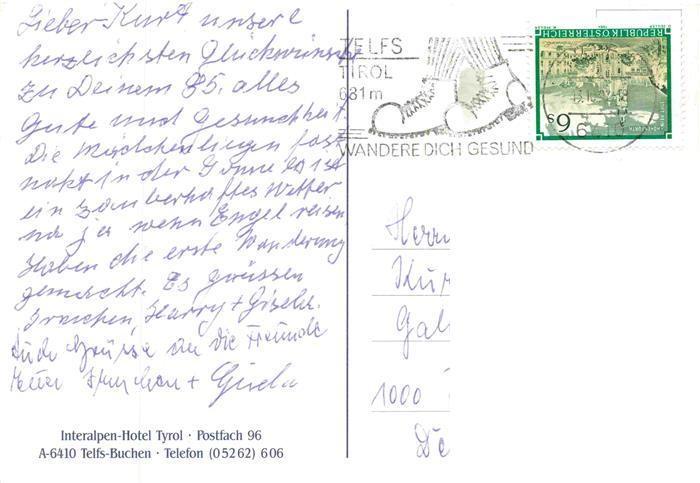 Lieber Kurt unsere
herzlichsten Glückwünsche
zu Deinem 85. alles
Gute und Gesundheit.
Die Mädchen liegen fast
nakt in der Sonne es ist
ein zauberhaftes Wetter
na ja wenn Engel reisen
Haben die erste Wanderung
gemacht. Es grüssen
Harry + Gisela.
Auch Grüsse an die Freunde
+ Gisela
Interalpen-Hotel Tyrol · Postfach 96
A-6410 Telfs-Buchen · Telefon (05262) 606
TELFS
TIROL
681 m
WANDERE DICH GESUND
REPUBLIK ÖSTERREICH
S 6
Herrn
Kur
Gal
1000
De